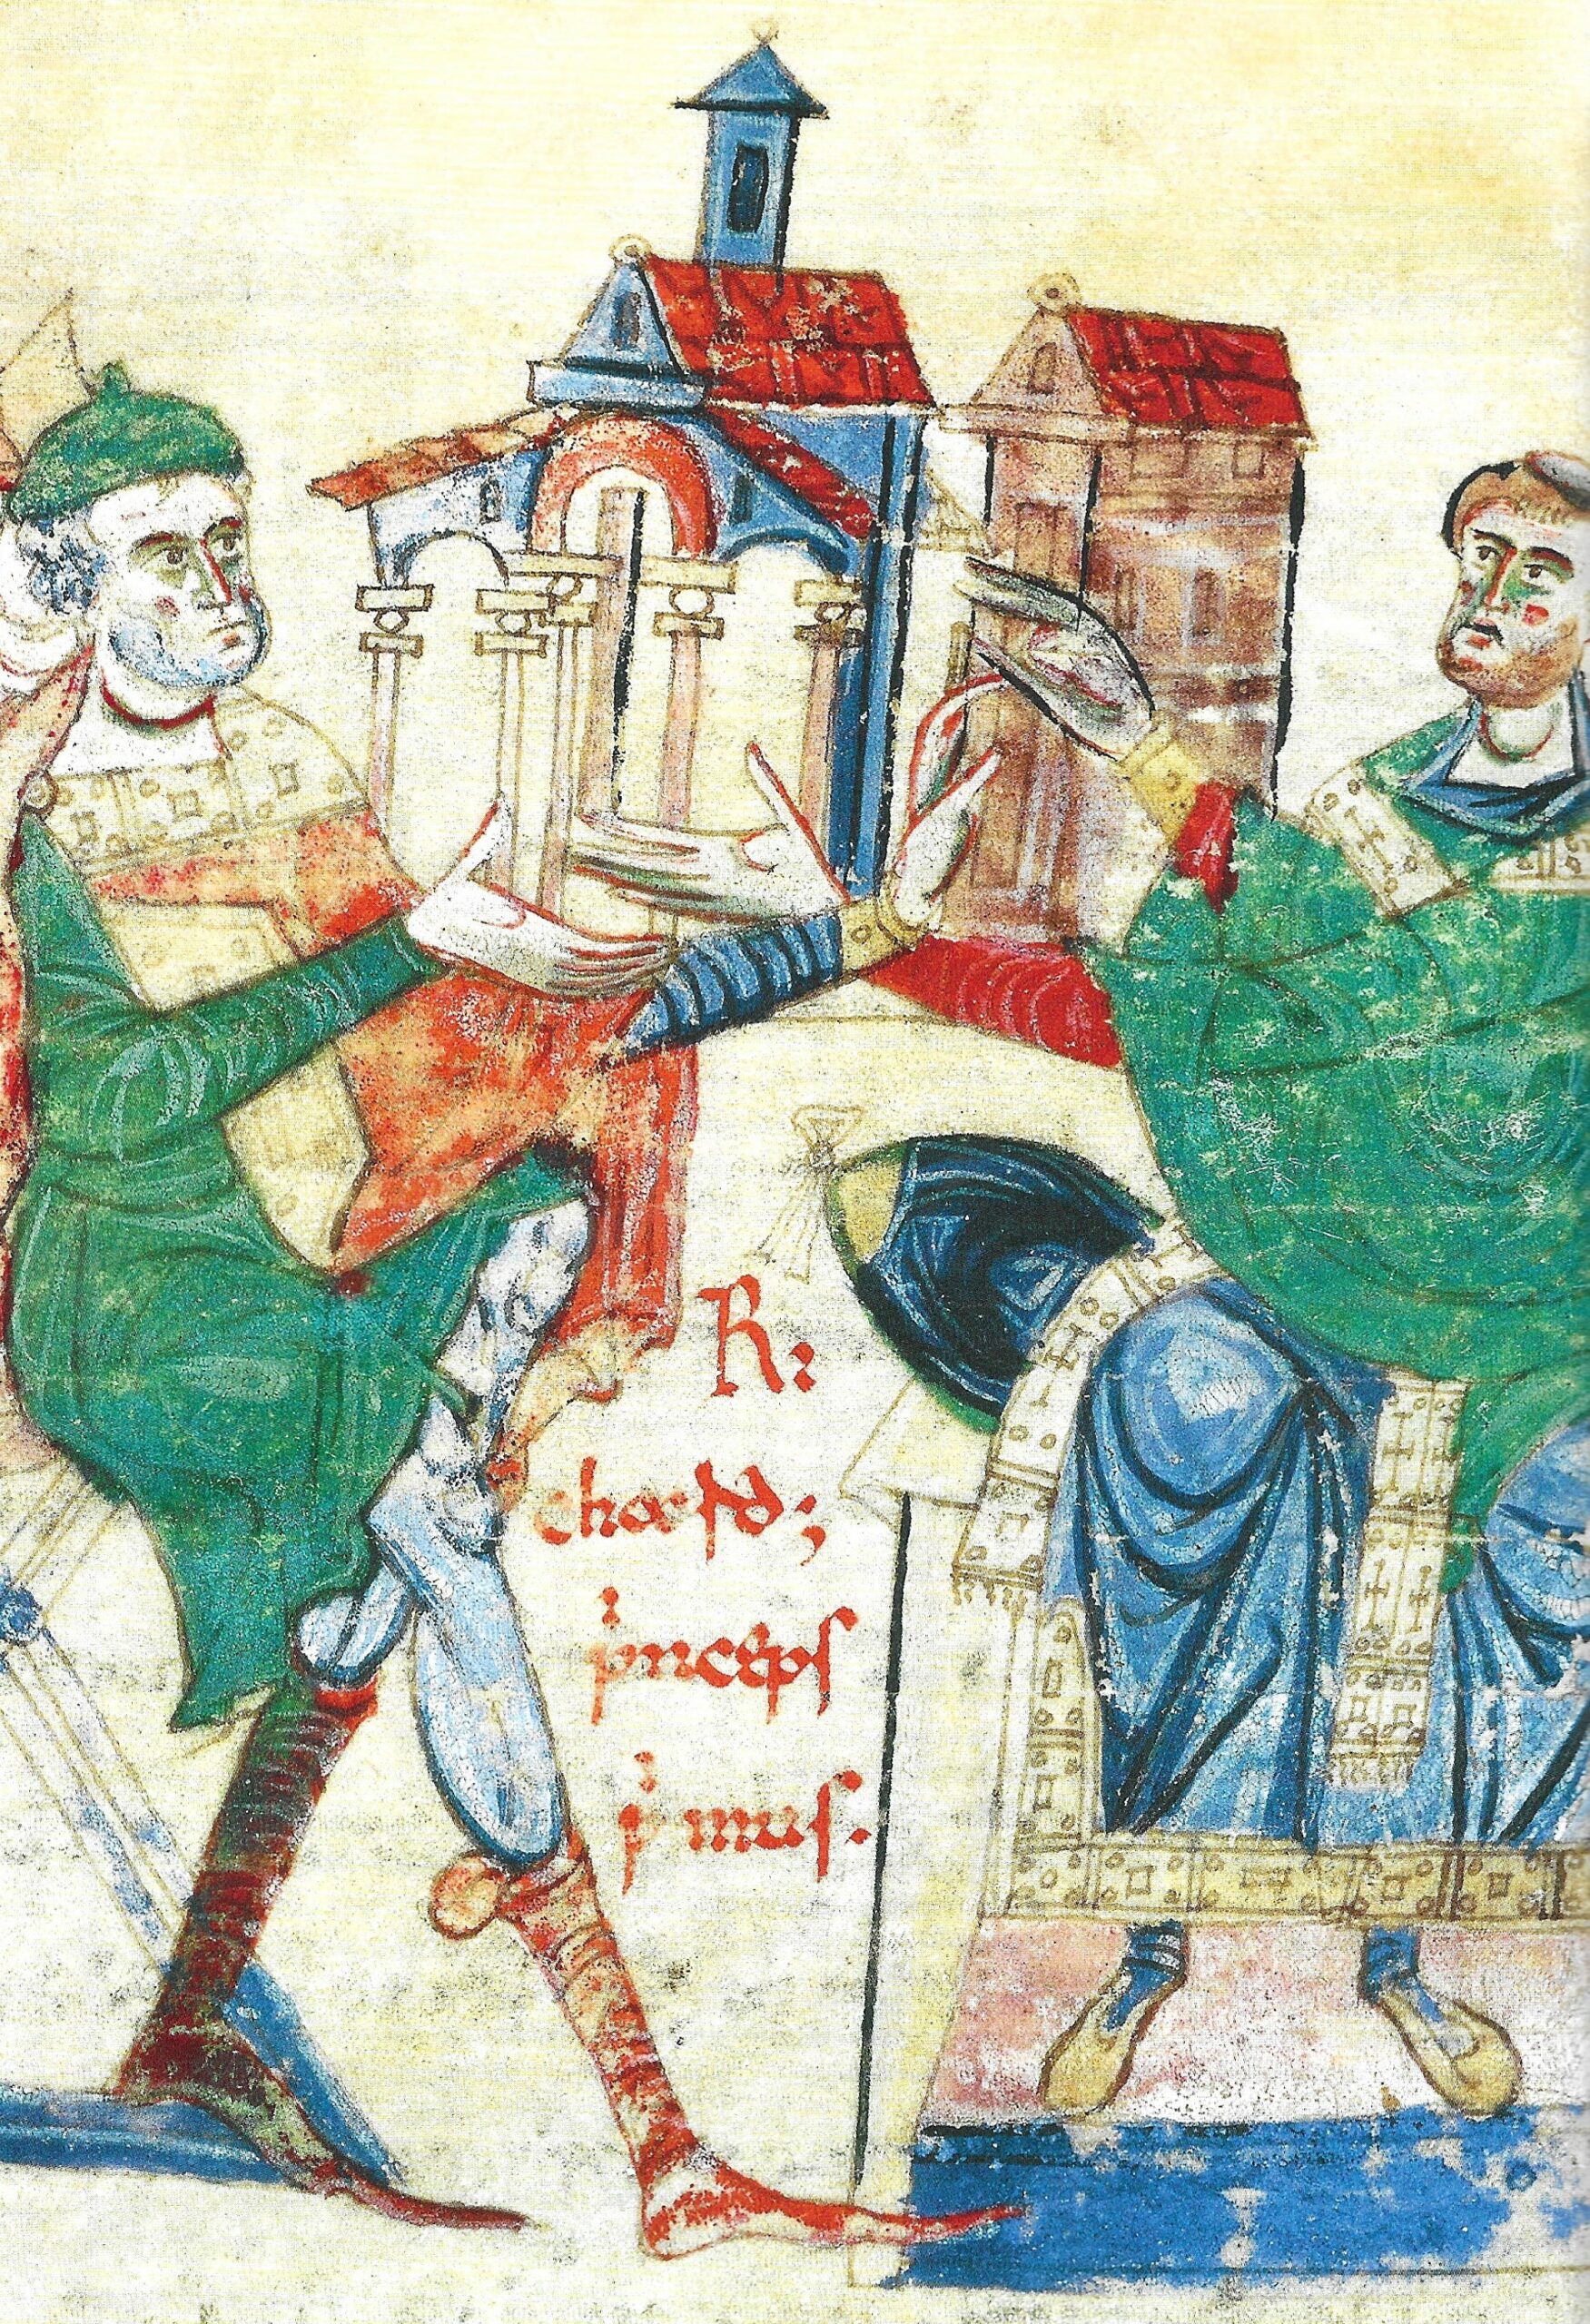 Ri
chard;
pⁱnceps
pⁱmus.